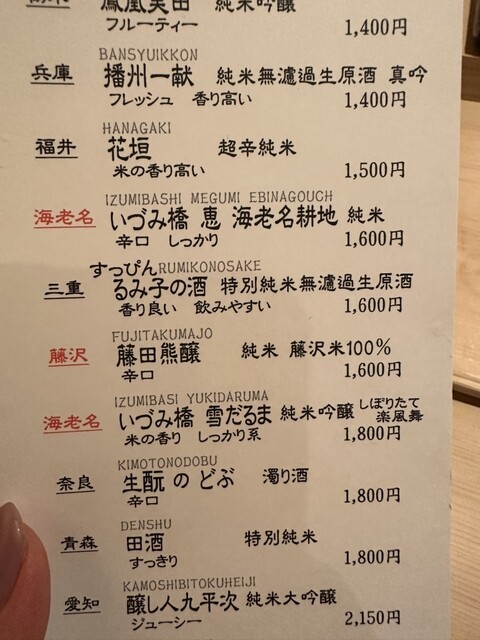 鳳凰美田 純米吟醸
フルーティー 1,400円
BANSYUIKKON
兵庫 播州一献 純米無濾過生原酒 真吟
フレッシュ 香り高い 1,400円
HANAGAKI
福井 花垣 超辛純米
米の香り高い 1,500円
IZUMIBASHI MEGUMI EBINAGOUCH
海老名 いづみ橋 恵 海老名耕地 純米
辛口 しっかり 1,600円
すっぴんRUMIKONOSAKE
三重 るみ子の酒 特別純米無濾過生原酒
香り良い 飲みやすい 1,600円
FUJITAKUMAJO
藤沢 藤田熊醸 純米 藤沢米100%
辛口 1,600円
IZUMIBASI YUKIDARUMA
海老名 いづみ橋 雪だるま 純米吟醸 しぼりたて 楽風舞
米の香り しっかり系 1,800円
KIMOTONODOBU
奈良 生酛 の どぶ 濁り酒
辛口 1,800円
DENSHU
青森 田酒 特別純米
すっきり 1,800円
KAMOSHIBITOKUHEIJI
愛知 醸し人九平次 純米大吟醸
ジューシー 2,150円